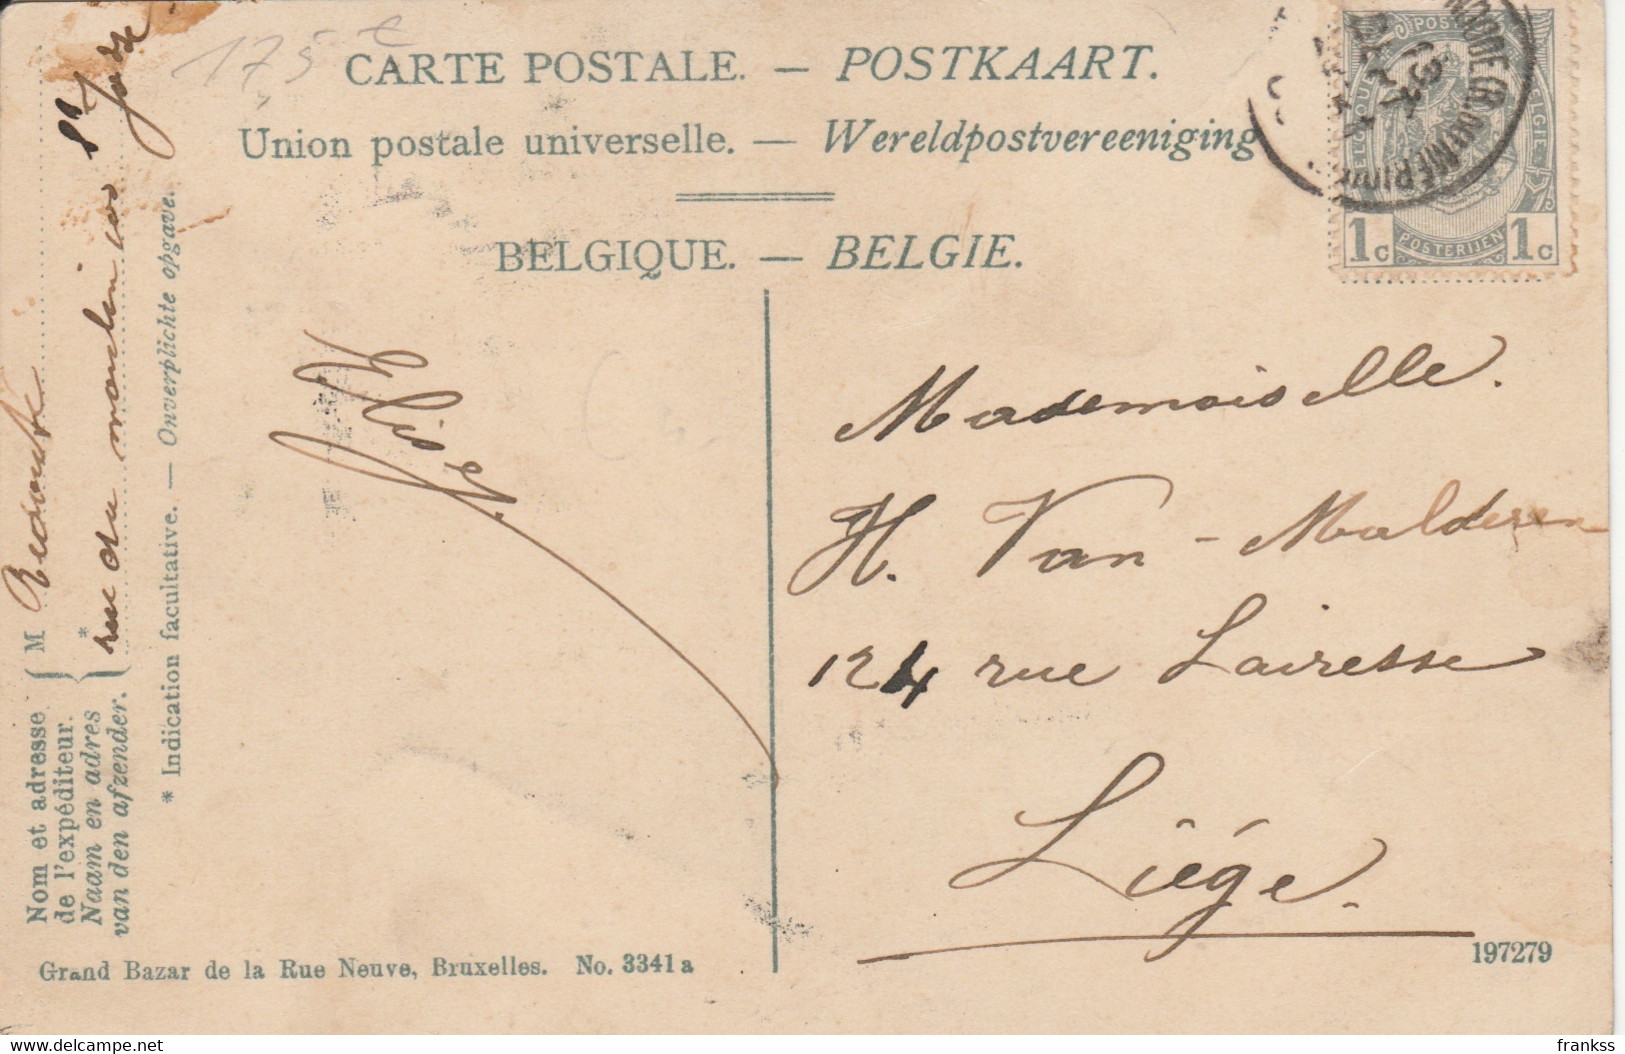 175 €
CARTE POSTALE. — POSTKAART.
Union postale universelle. — Wereldpostvereeniging
BELGIQUE. — BELGIE.
POSTES
BELGIQUE
BELGIE
1c POSTERIJEN 1c
M Redouté
rue du moulin 100 St Josse
Nom et adresse
de l'expéditeur.
Naam en adres
van den afzender.
* Indication facultative. — Onverplichte opgave.
Elise
Mademoiselle.
H. Van-Malderen
124 rue Lairesse
Liége.
Grand Bazar de la Rue Neuve, Bruxelles. No. 3341 a
197279
frankss